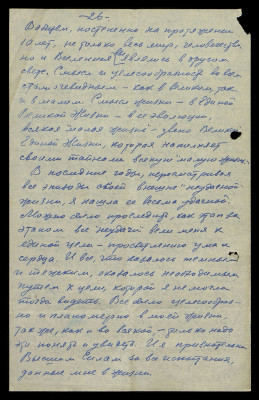 - 26 -
Вообщем, постепенно на протяжении
10 лет, не только весь мир, человечество,
но и Вселенная явились в другом
свете. Смысл и целесообразность во всем
стали очевидней – как в великом, так
и в малом. Смысл жизни – в Единой
Великой Жизни – в её эволюции,
всякая "малая жизнь" – звено Великой
Единой Жизни, которая наполняет
своими токами всякую малую жизнь.
В последние годы, пересматривая
все эпизоды своей внешне "неудачной"
жизни, я нашла её весьма удачной.
Можно было проследить, как этап за
этапом все "неудачи" вели меня к
единой цели – просветлению ума и
сердца. И все, что казалось темным
и тяжким, оказалось необходимым
путем к цели, которой я не могла
тогда видеть. Все было целесообраз-
но и планомерно в моей жизни,
так же, как и во всякой, – только надо
это понять и увидеть. И я признательна
Высшим Силам за все испытания,
данные мне в жизни.